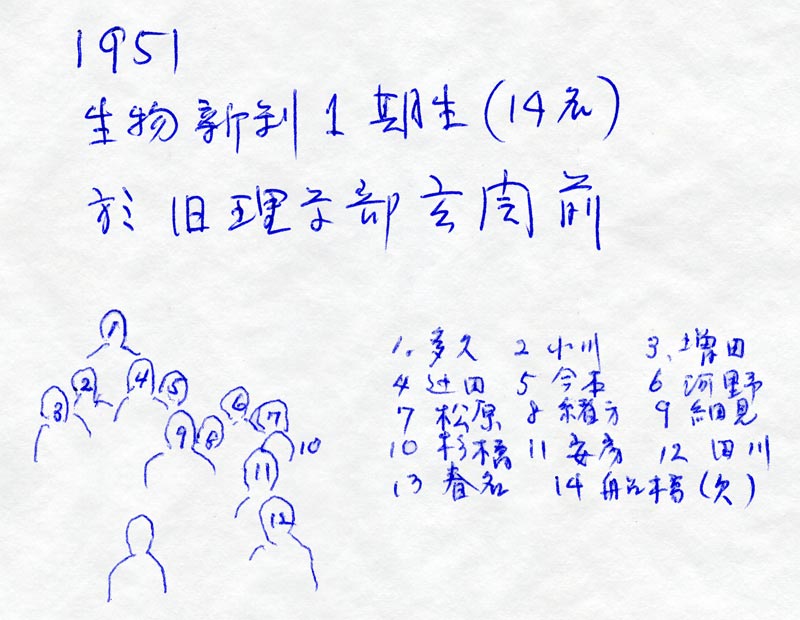 1951
生物新制1期生(14名)
於旧理学部玄関前
1
2 4 5
3 6 7
9 8 10
11
12
1. 多久 2 小川 3. 増田
4 辻田 5 今本 6 河野
7 松原 8 緒方 9 細見
10 杉橋 11 安彦 12 田川
13 春名 14 船橋(欠)